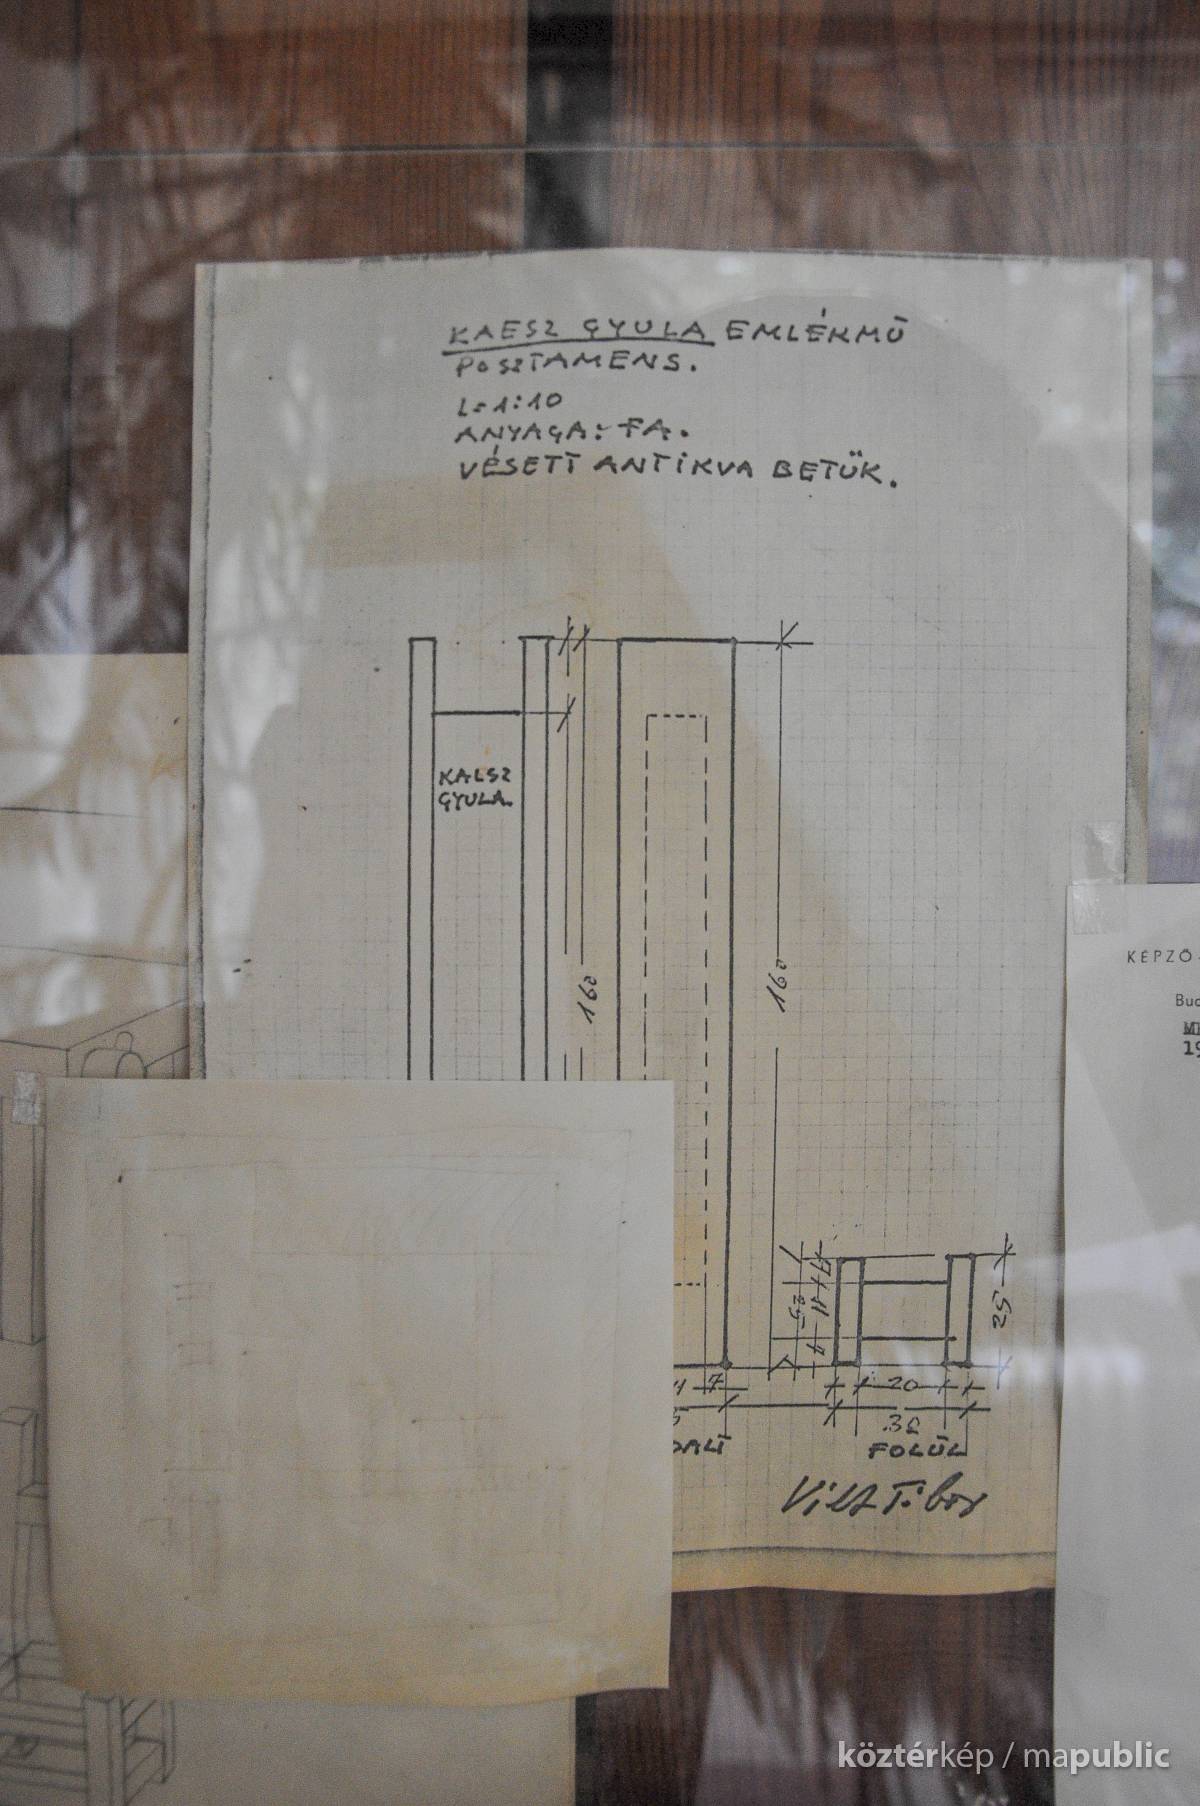 KAESZ GYULA EMLÉKMŰ
POSZTAMENS.
L=1:10
ANYAGA: FA.
VÉSETT ANTIKVA BETŰK.
KAESZ
GYULA.
160
160
7
11
7
25
25
11 7
20
32
OLDALT
FÖLÜL
Vilt Tibor
KÉPZŐ-
Bud
19
köztérkép / mapublic